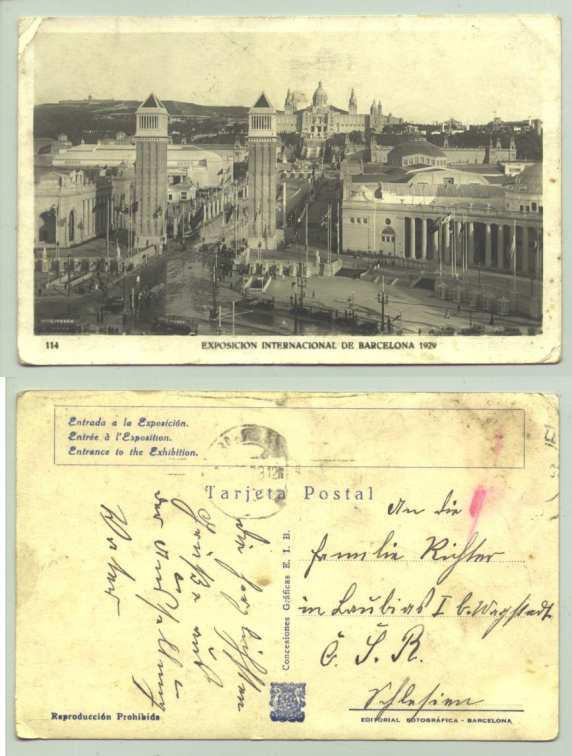 114
EXPOSICION INTERNACIONAL DE BARCELONA 1929
Entrada a la Exposición.
Entrée à l'Exposition.
Entrance to the Exhibition.
Tarjeta Postal
Die herzlichsten
Grüße aus
der Ausstellung
Vater
Concesiones Gráficas E. I. B.
An die
Familie Richter
in Laubias I b. Wagstadt.
Č. S. R.
Schlesien
Reproducción Prohibida
EDITORIAL FOTOGRÁFICA - BARCELONA